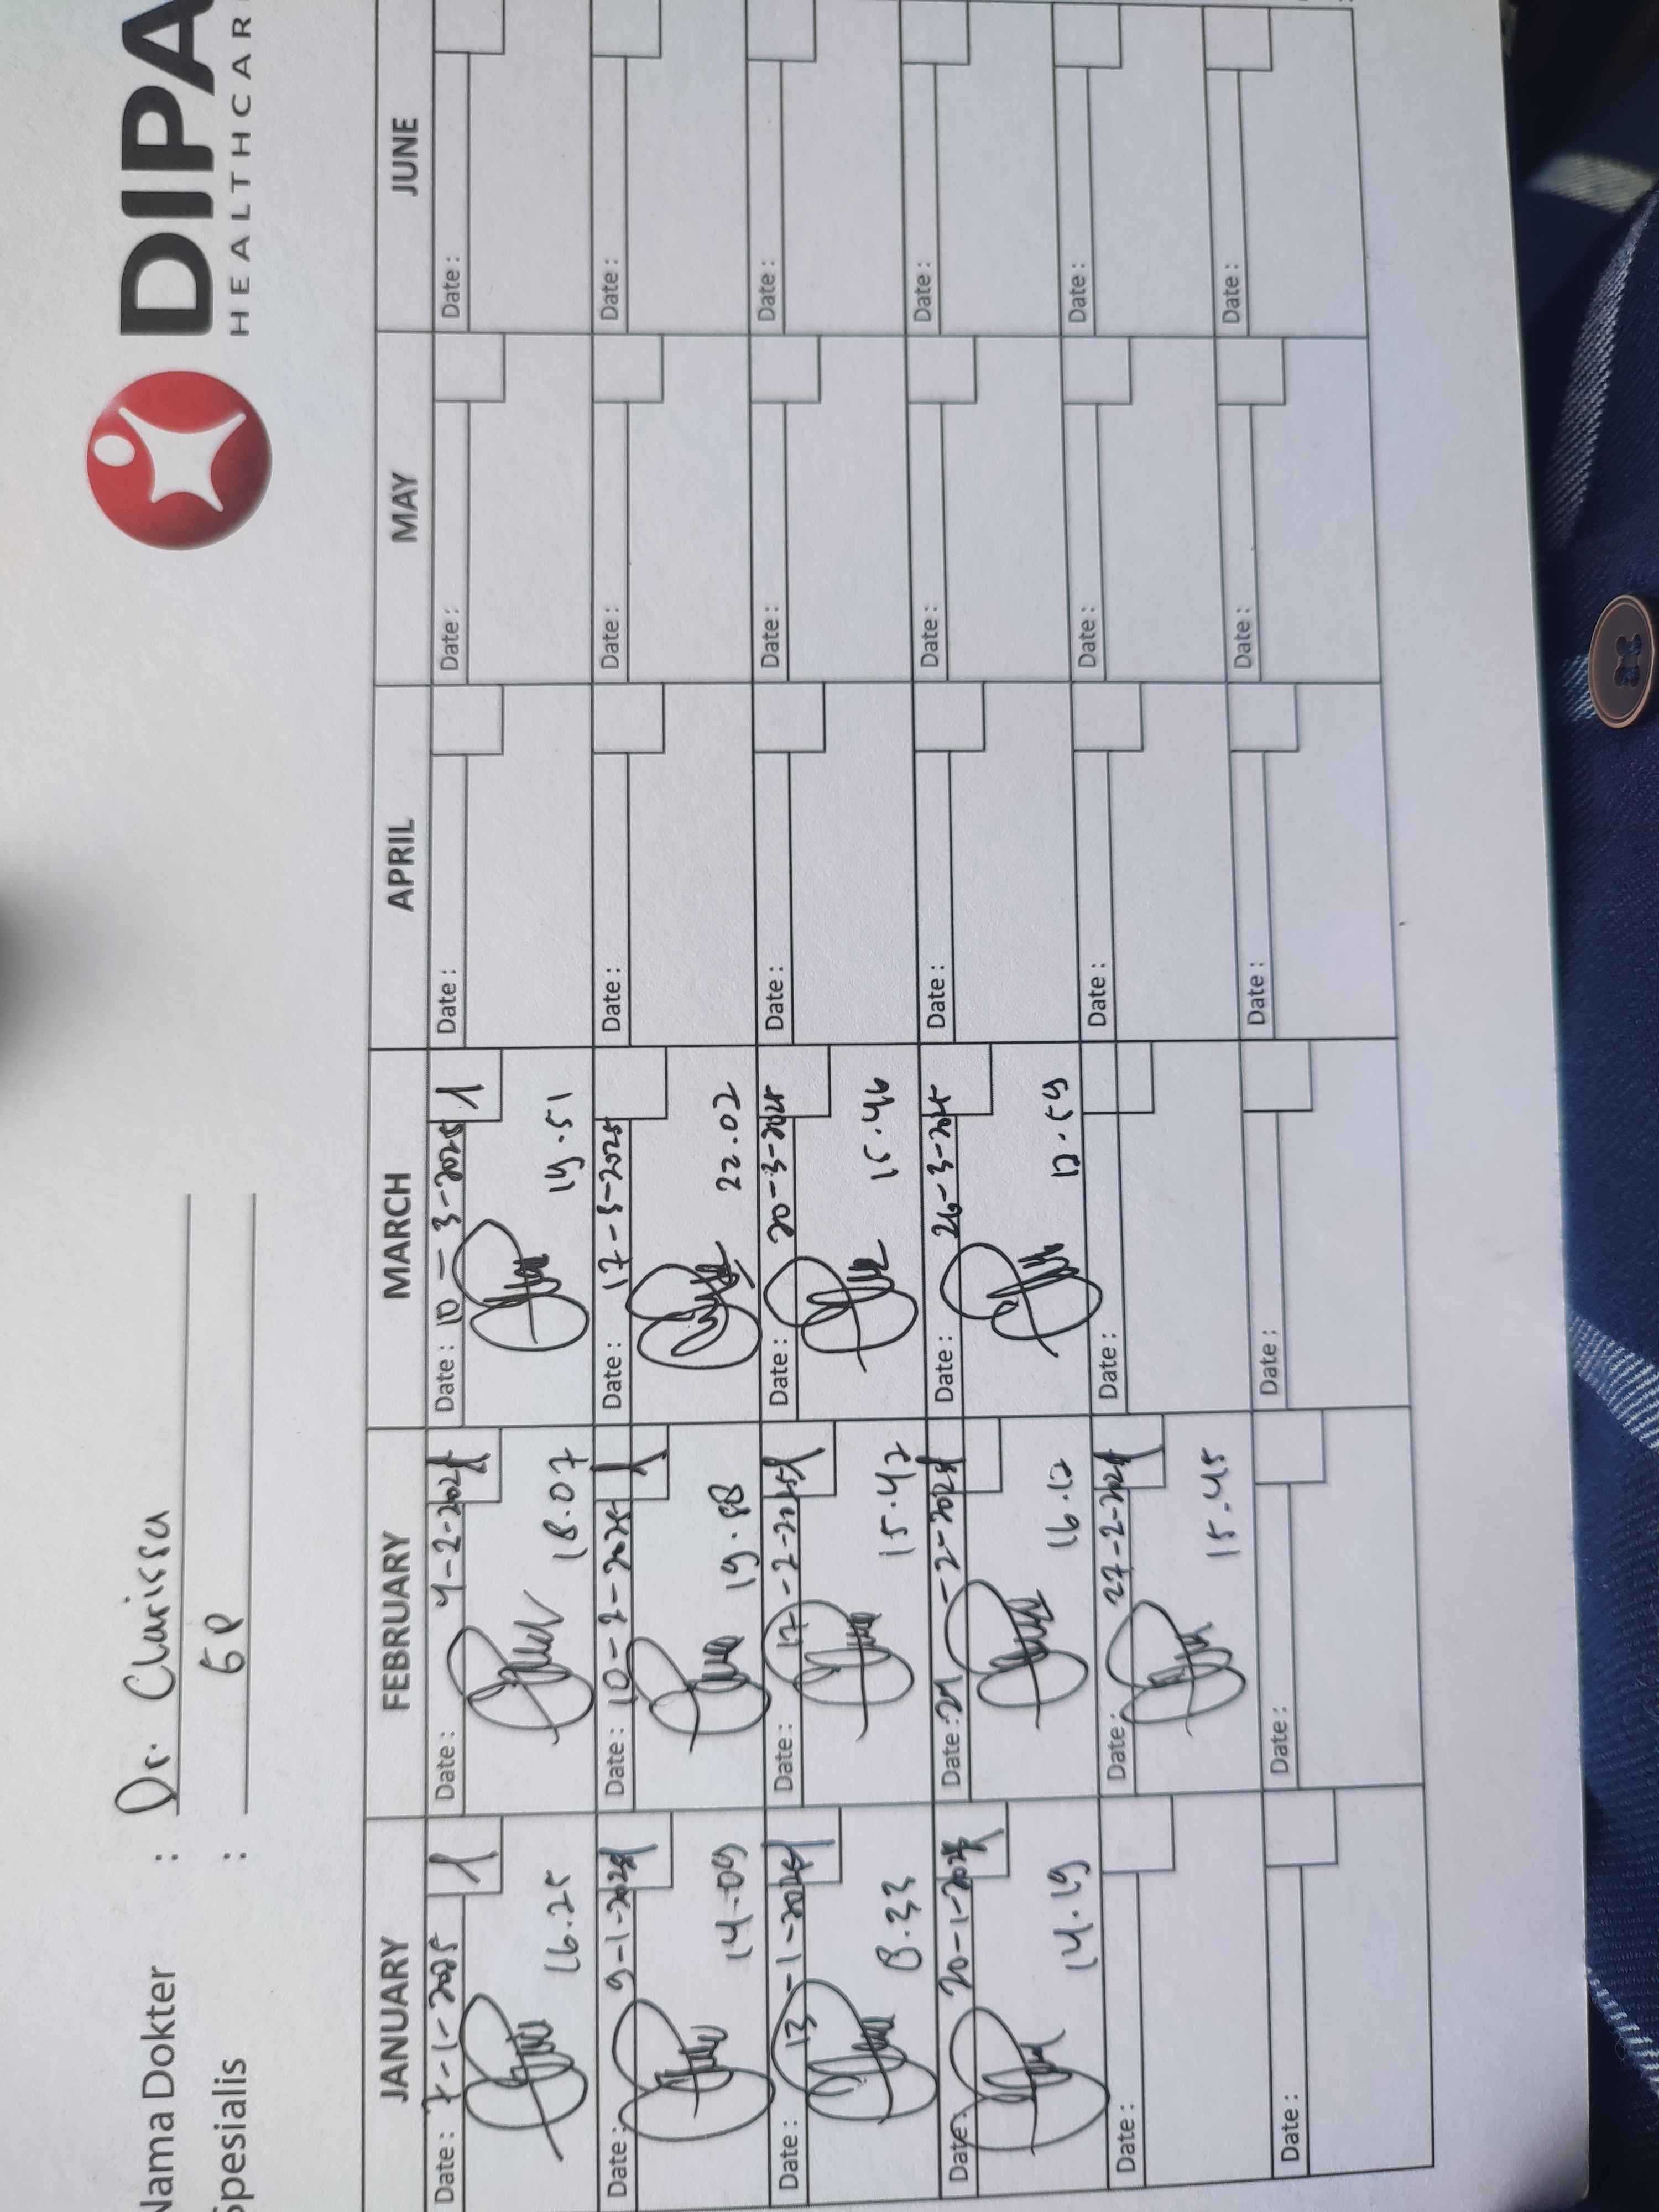 DIPA
HEALTHCAR
Nama Dokter : Dr. Clarissa
Spesialis : GP
JANUARY FEBRUARY MARCH APRIL MAY JUNE
Date : 7-1-2025 Date : 4-2-2025 Date : 10-3-2025 Date : Date : Date :
16.25 18.07 19.51
Date : 9-1-2025 Date : 10-2-2025 Date : 17-3-2025 Date : Date : Date :
14-09 22.02
Date : 13-1-2025 Date : 17-2-2025 Date : 20-3-2025 Date : Date : Date :
8.33 15.42 15.46
Date : 20-1-2025 Date : 21-2-2025 Date : 26-3-2025 Date : Date : Date :
14.19 16.12 12.59
Date : Date : 27-2-2025 Date : Date : Date : Date :
15.45
Date : Date : Date : Date : Date : Date :